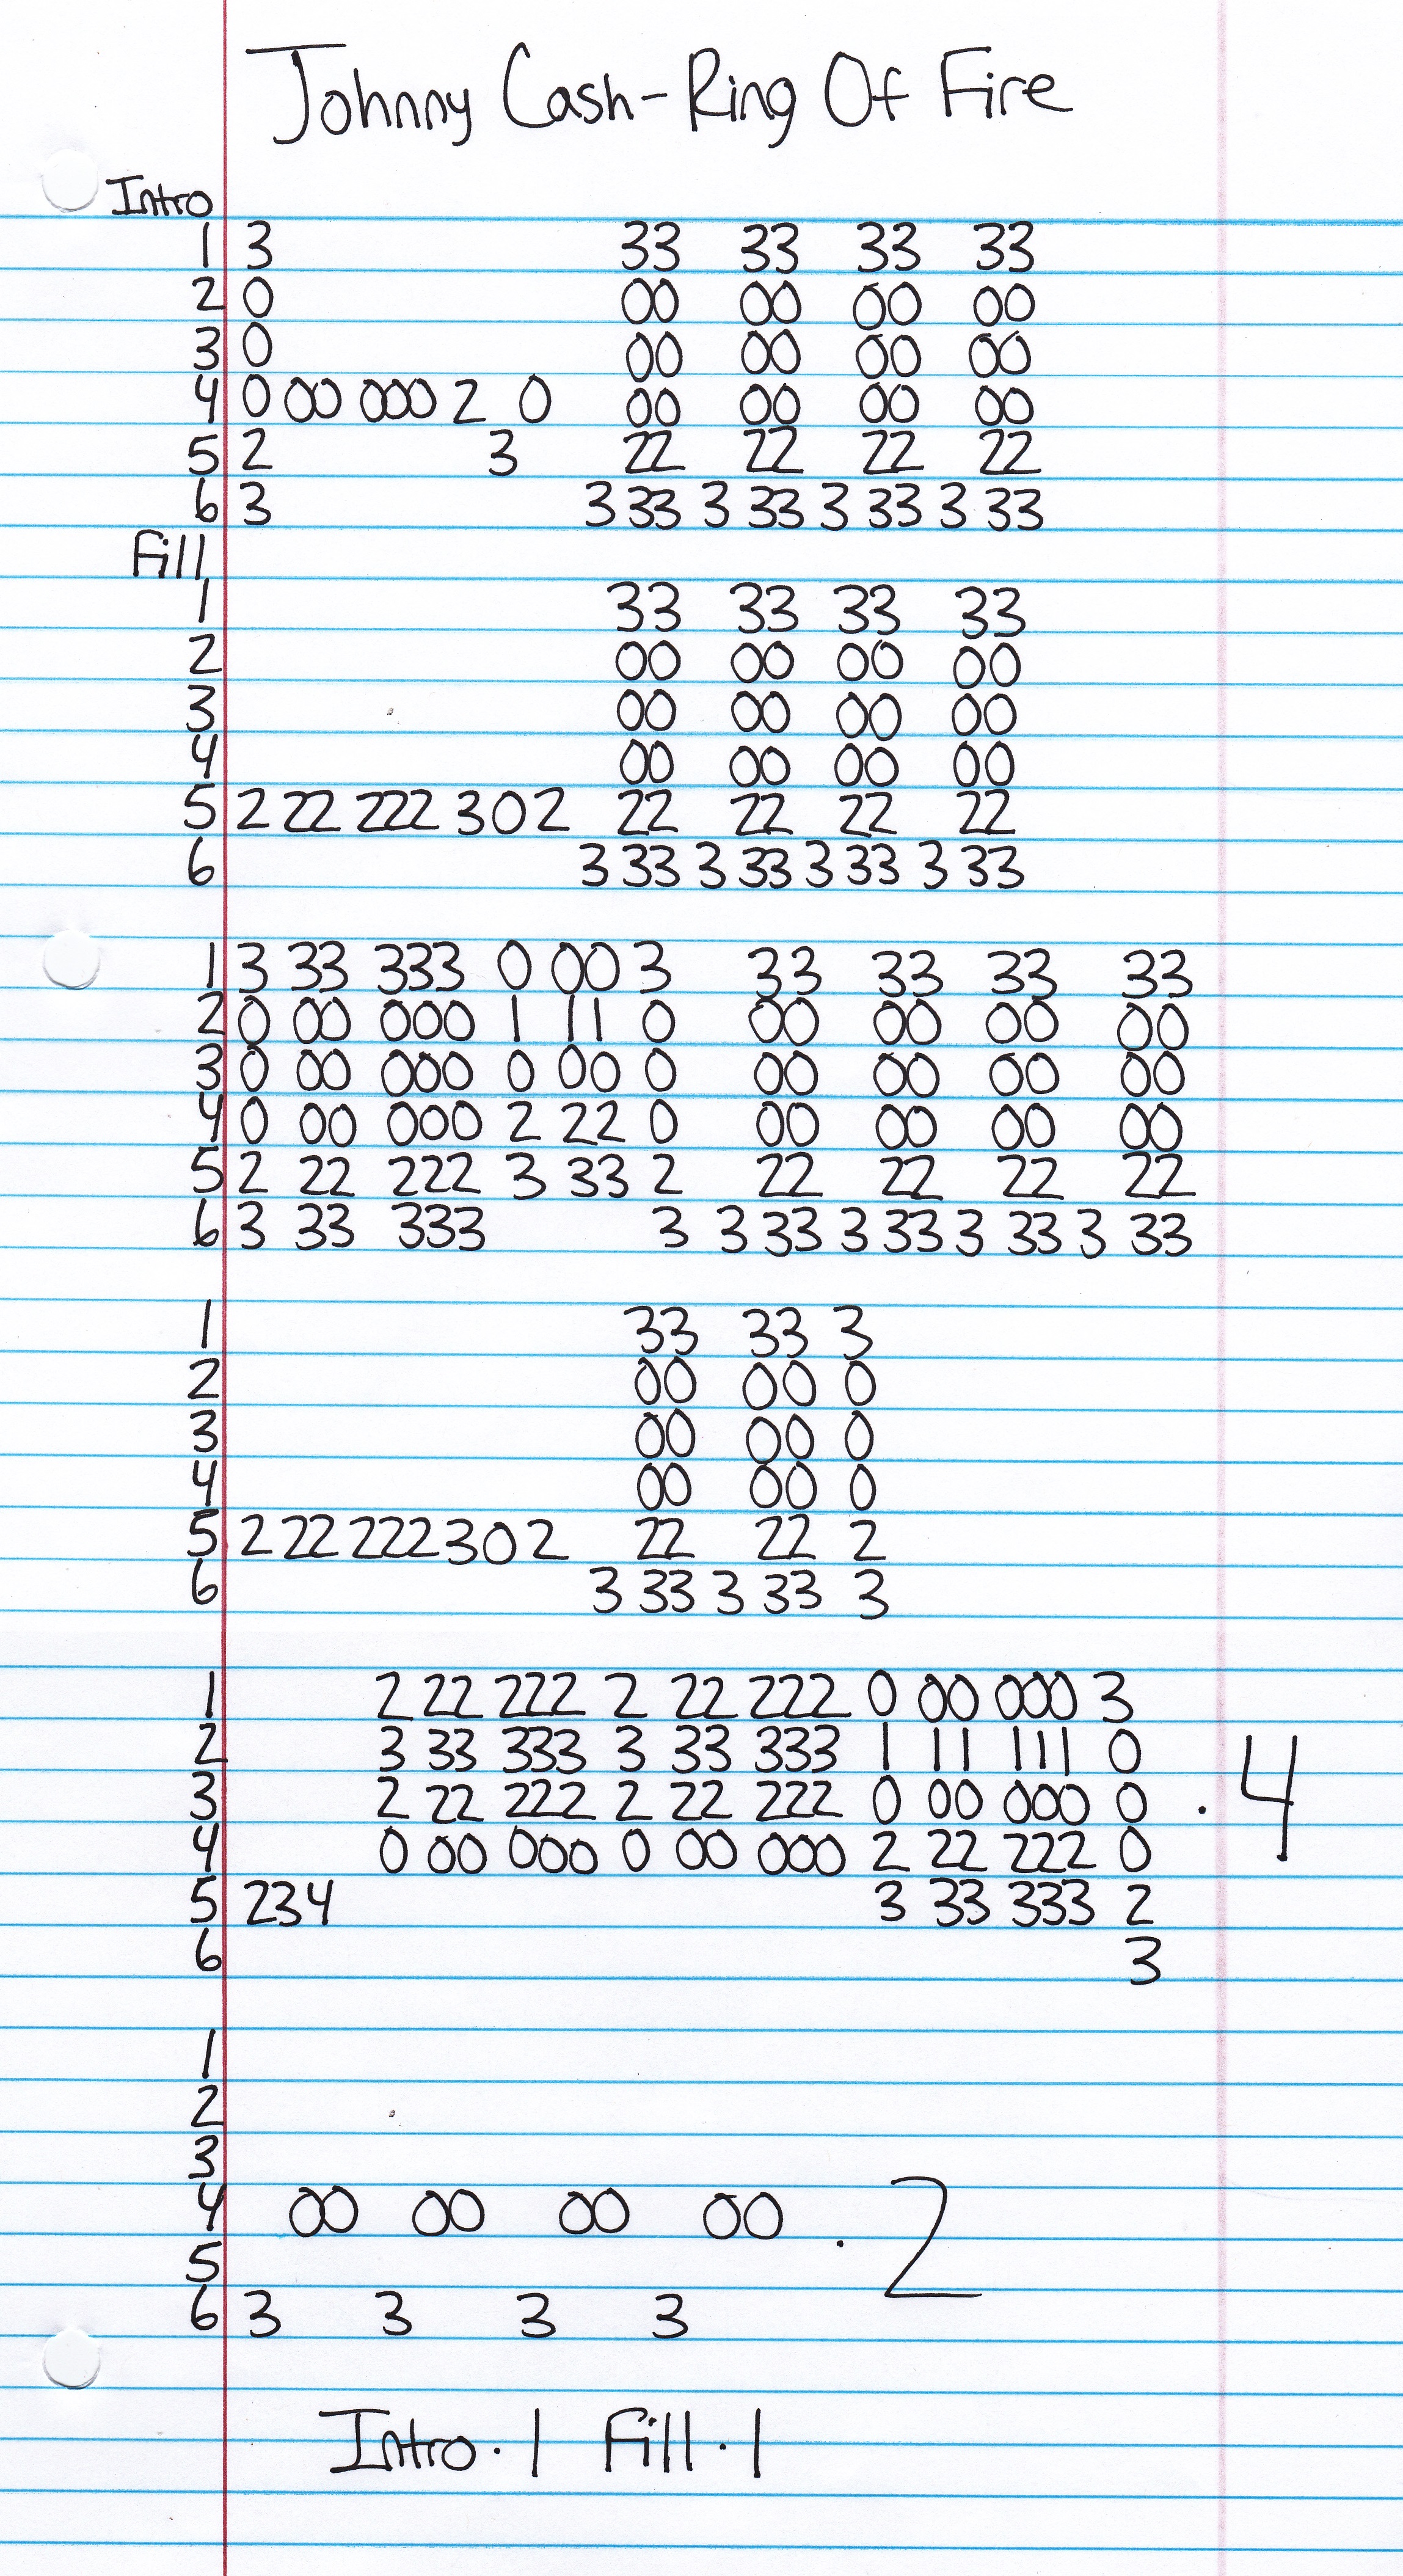 Johnny Cash-Ring Of Fire
Intro
1 3 33 33 33 33
2 0 00 00 00 00
3 0 00 00 00 00
4 0 00 000 2 0 00 00 00 00
5 2 3 22 22 22 22
6 3 3 33 3 33 3 33 3 33
Fill
1 33 33 33 33
2 00 00 00 00
3 00 00 00 00
4 00 00 00 00
5 2 22 222 3 0 2 22 22 22 22
6 3 33 3 33 3 33 3 33
1 3 33 333 0 00 3 33 33 33 33
2 0 00 000 1 11 0 00 00 00 00
3 0 00 000 0 00 0 00 00 00 00
4 0 00 000 2 22 0 00 00 00 00
5 2 22 222 3 33 2 22 22 22 22
6 3 33 333 3 3 33 3 33 3 33 3 33
1 33 33 3
2 00 00 0
3 00 00 0
4 00 00 0
5 2 22 222 3 0 2 22 22 2
6 3 33 3 33 3
1 2 22 222 2 22 222 0 00 000 3
2 3 33 333 3 33 333 1 11 111 0
3 2 22 222 2 22 222 0 00 000 0 . 4
4 0 00 000 0 00 000 2 22 222 0
5 234 3 33 333 2
6 3
1
2
3
4 00 00 00 00 . 2
5
6 3 3 3 3
Intro . 1 Fill . 1